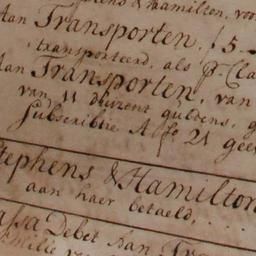 & Hamilton, voo
Aan Transporten. ƒ 5
transporteerd, als P.r Cla
Aan Transporten, van
van 11 duizent guldens, g
Subscribtie A.o 21 gee
Stephens & Hamilton
aan haer betaeld, ....
assa Debet Aan Tra